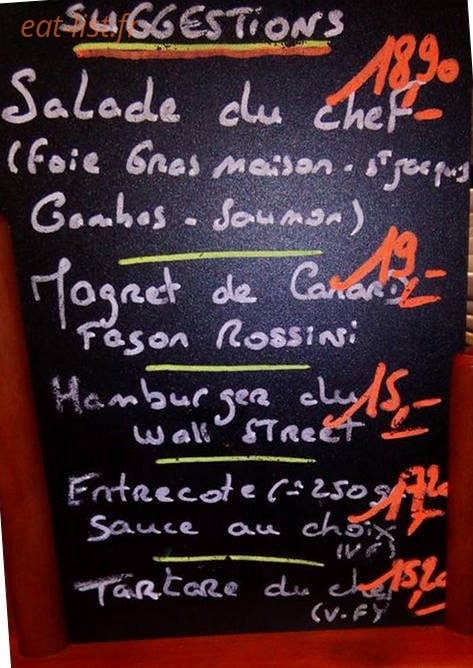 eat-list.fr
SUGGESTIONS
18,90
Salade du chef -
(Foie Gras maison - St Jacques
Gambas - Saumon)
19 -
Magret de Canard
Fason Rossini
Hamburger du 15,-
Wall Street
Entrecote (-250g
Sauce au choix
(VF)
Tartare du chef 15,20
(V.F)